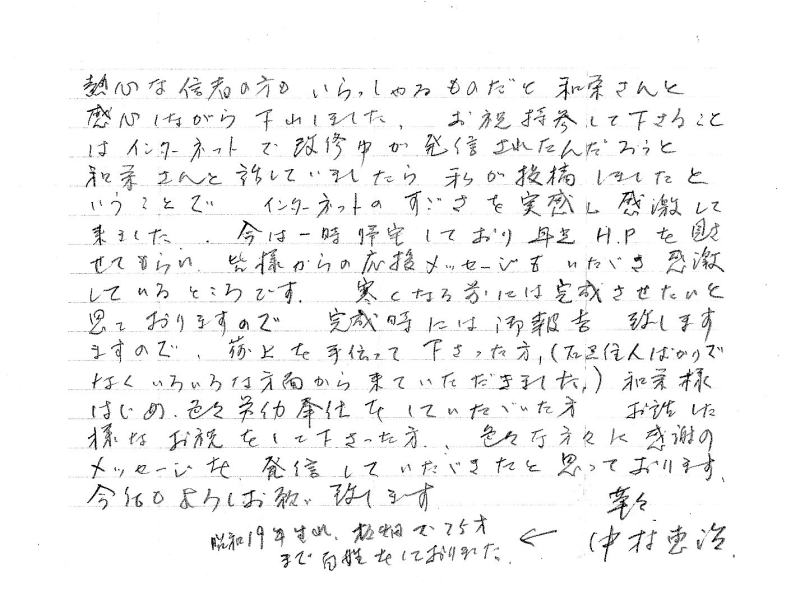 熱心な信者の方もいらっしゃるものだと和栄さんと
感心しながら下山しました、 お祝持参して下さること
はインターネットで改修中が発信されたんだろうと
和栄さんと話していましたら私が投稿しましたと
いうことで インターネットのすごさを実感し感激して
来ました.. 今は一時帰宅しており早速H.Pを見さ
せてもらい、皆様からの応援メッセージをいただき感激
しているところです. 寒くなる前には完成させたいと
思っておりますので 完成時には御報告致します
ますので、荷上を手伝って下さった方,(石足住人ばかりで
なくいろいろな方面から来ていただきました,) 和栄様
はじめ、色々労働奉仕をしていただいた方 お話した
様なお祝をして下さった方、、色々な方々に感謝の
メッセージを発信していただきたと思っております.
今後もよろしお願い致します
草々
中村恵治.
昭和19年生れ、板畑で75才 ←
まで百姓をしておりました.